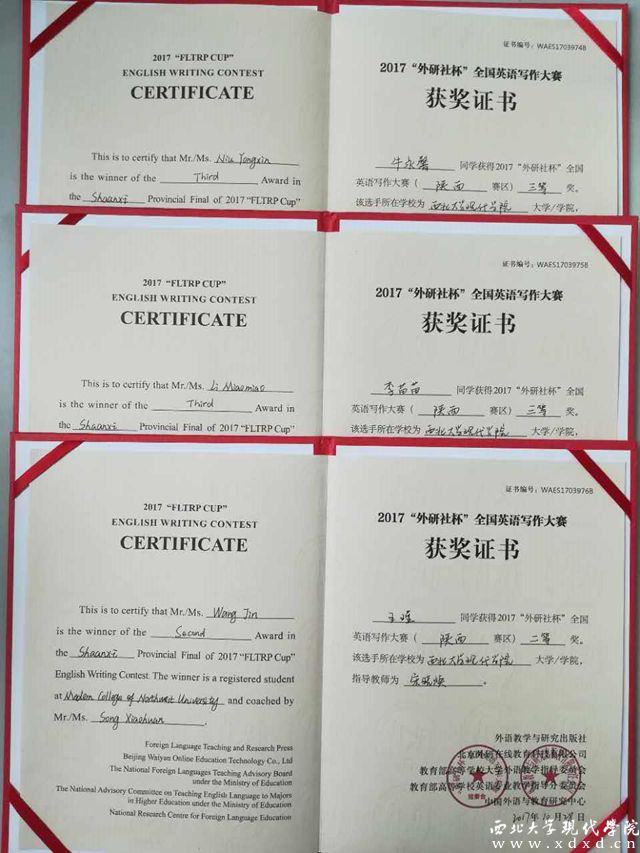 2017 “FLTRP CUP”
ENGLISH WRITING CONTEST
CERTIFICATE
This is to certify that Mr./Ms. Niu Yongxin
is the winner of the Third Award in
the Shaanxi Provincial Final of 2017 “FLTRP Cup”
证书编号：WAES1703974B
2017“外研社杯”全国英语写作大赛
获奖证书
牛永馨 同学获得2017“外研社杯”全国
英语写作大赛（陕西 赛区）三等 奖。
该选手所在学校为西北大学现代学院 大学/学院，
2017 “FLTRP CUP”
ENGLISH WRITING CONTEST
CERTIFICATE
This is to certify that Mr./Ms. Li Miaomiao
is the winner of the Third Award in
the Shaanxi Provincial Final of 2017 “FLTRP Cup”
证书编号：WAES1703975B
2017“外研社杯”全国英语写作大赛
获奖证书
李苗苗 同学获得2017“外研社杯”全国
英语写作大赛（陕西 赛区）三等 奖。
该选手所在学校为西北大学现代学院 大学/学院，
2017 “FLTRP CUP”
ENGLISH WRITING CONTEST
CERTIFICATE
This is to certify that Mr./Ms. Wang Jin
is the winner of the Second Award in
the Shaanxi Provincial Final of 2017 “FLTRP Cup”
English Writing Contest. The winner is a registered student
at Modern College of Northwest University and coached by
Mr./Ms. Song Xiaohuan.
Foreign Language Teaching and Research Press
Beijing Waiyan Online Education Technology Co., Ltd
The National Foreign Languages Teaching Advisory Board
under the Ministry of Education
The National Advisory Committee on Teaching English to Majors
in Higher Education under the Ministry of Education
National Research Centre for Foreign Language Education
证书编号：WAES1703976B
2017“外研社杯”全国英语写作大赛
获奖证书
王 同学获得2017“外研社杯”全国
英语写作大赛（陕西 赛区）二等 奖。
该选手所在学校为西北大学现代学院 大学/学院，
指导教师为 宋晓焕。
外语教学与研究出版社
北京外研在线教育科技有限公司
教育部高等学校大学外语教学指导委员会
教育部高等学校英语专业教学指导分委员会
中国外语与教育研究中心
2017年10月28日
西北大学现代学院
www.xdxd.cn